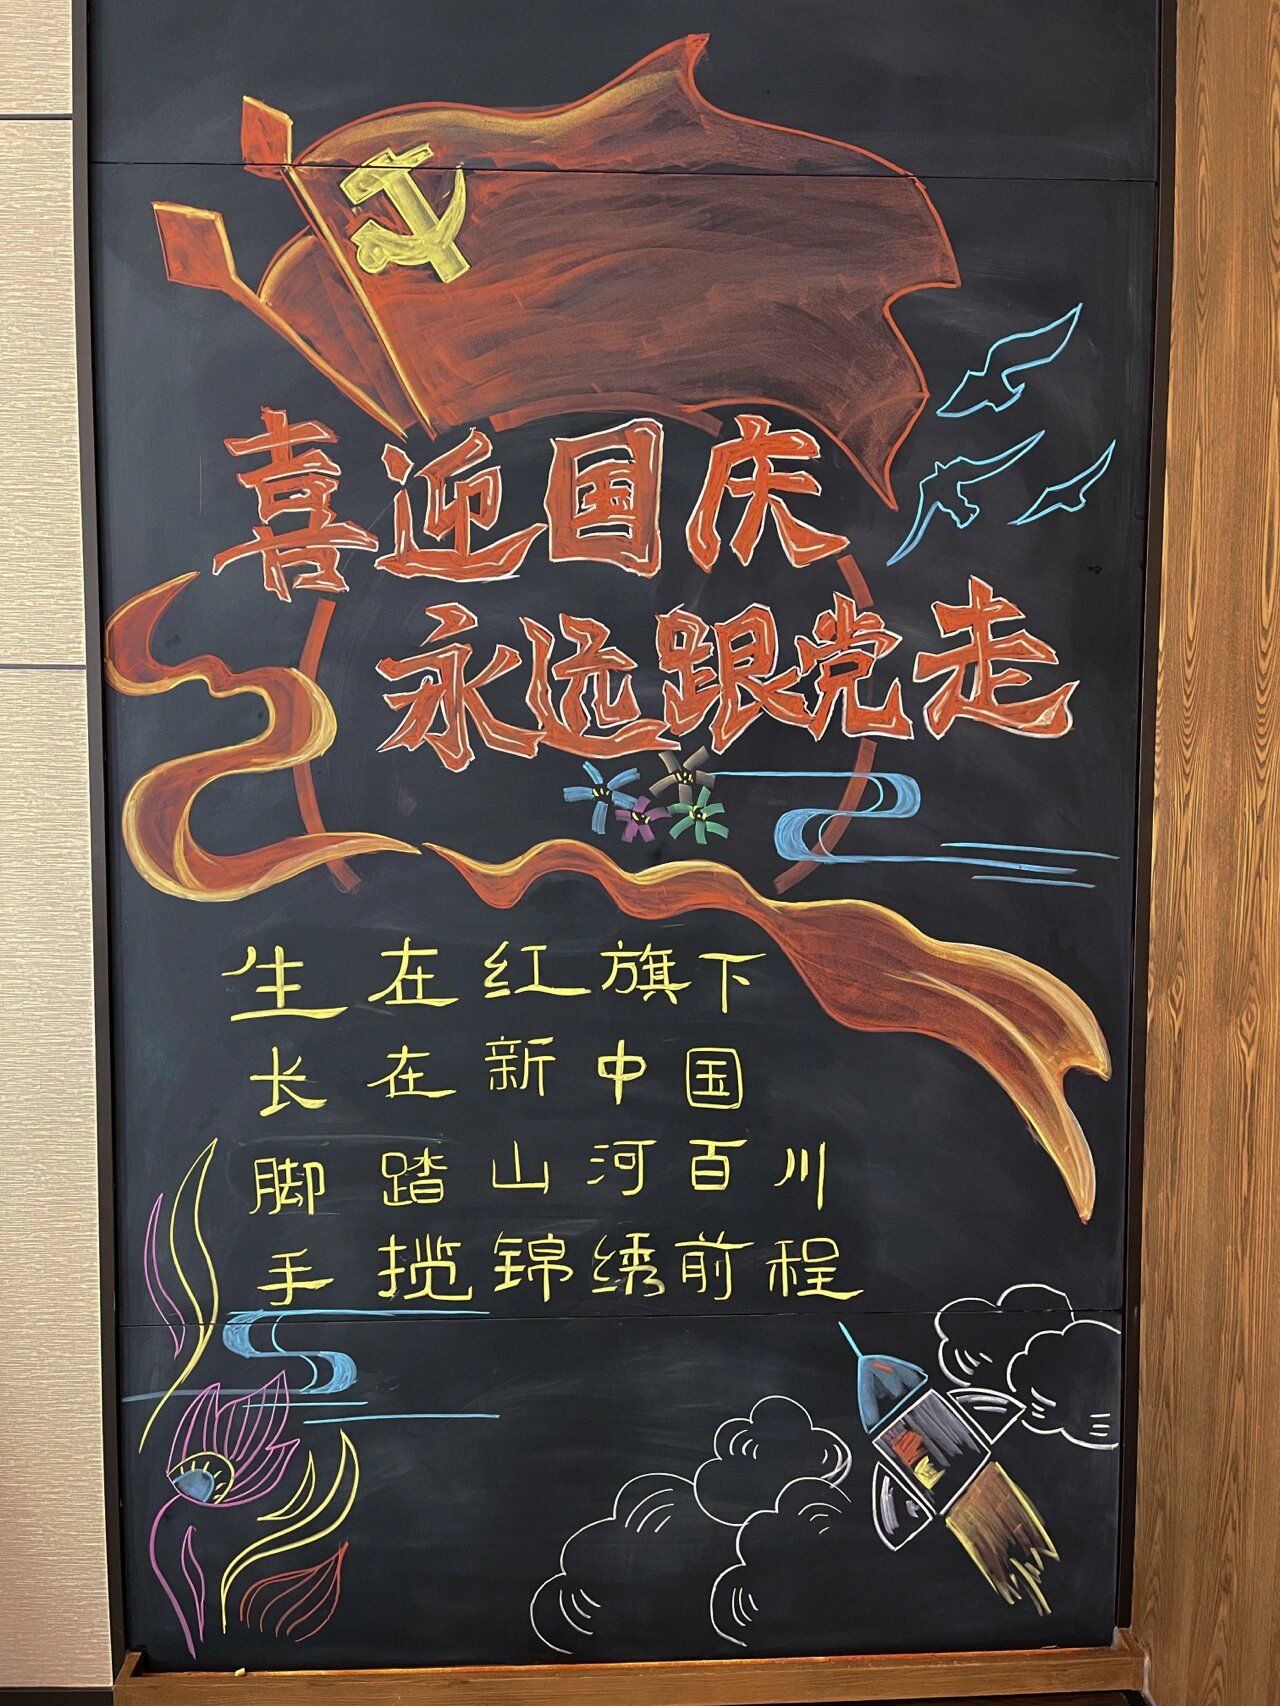 喜迎国庆
永远跟党走
生在红旗下
长在新中国
脚踏山河百川
手揽锦绣前程